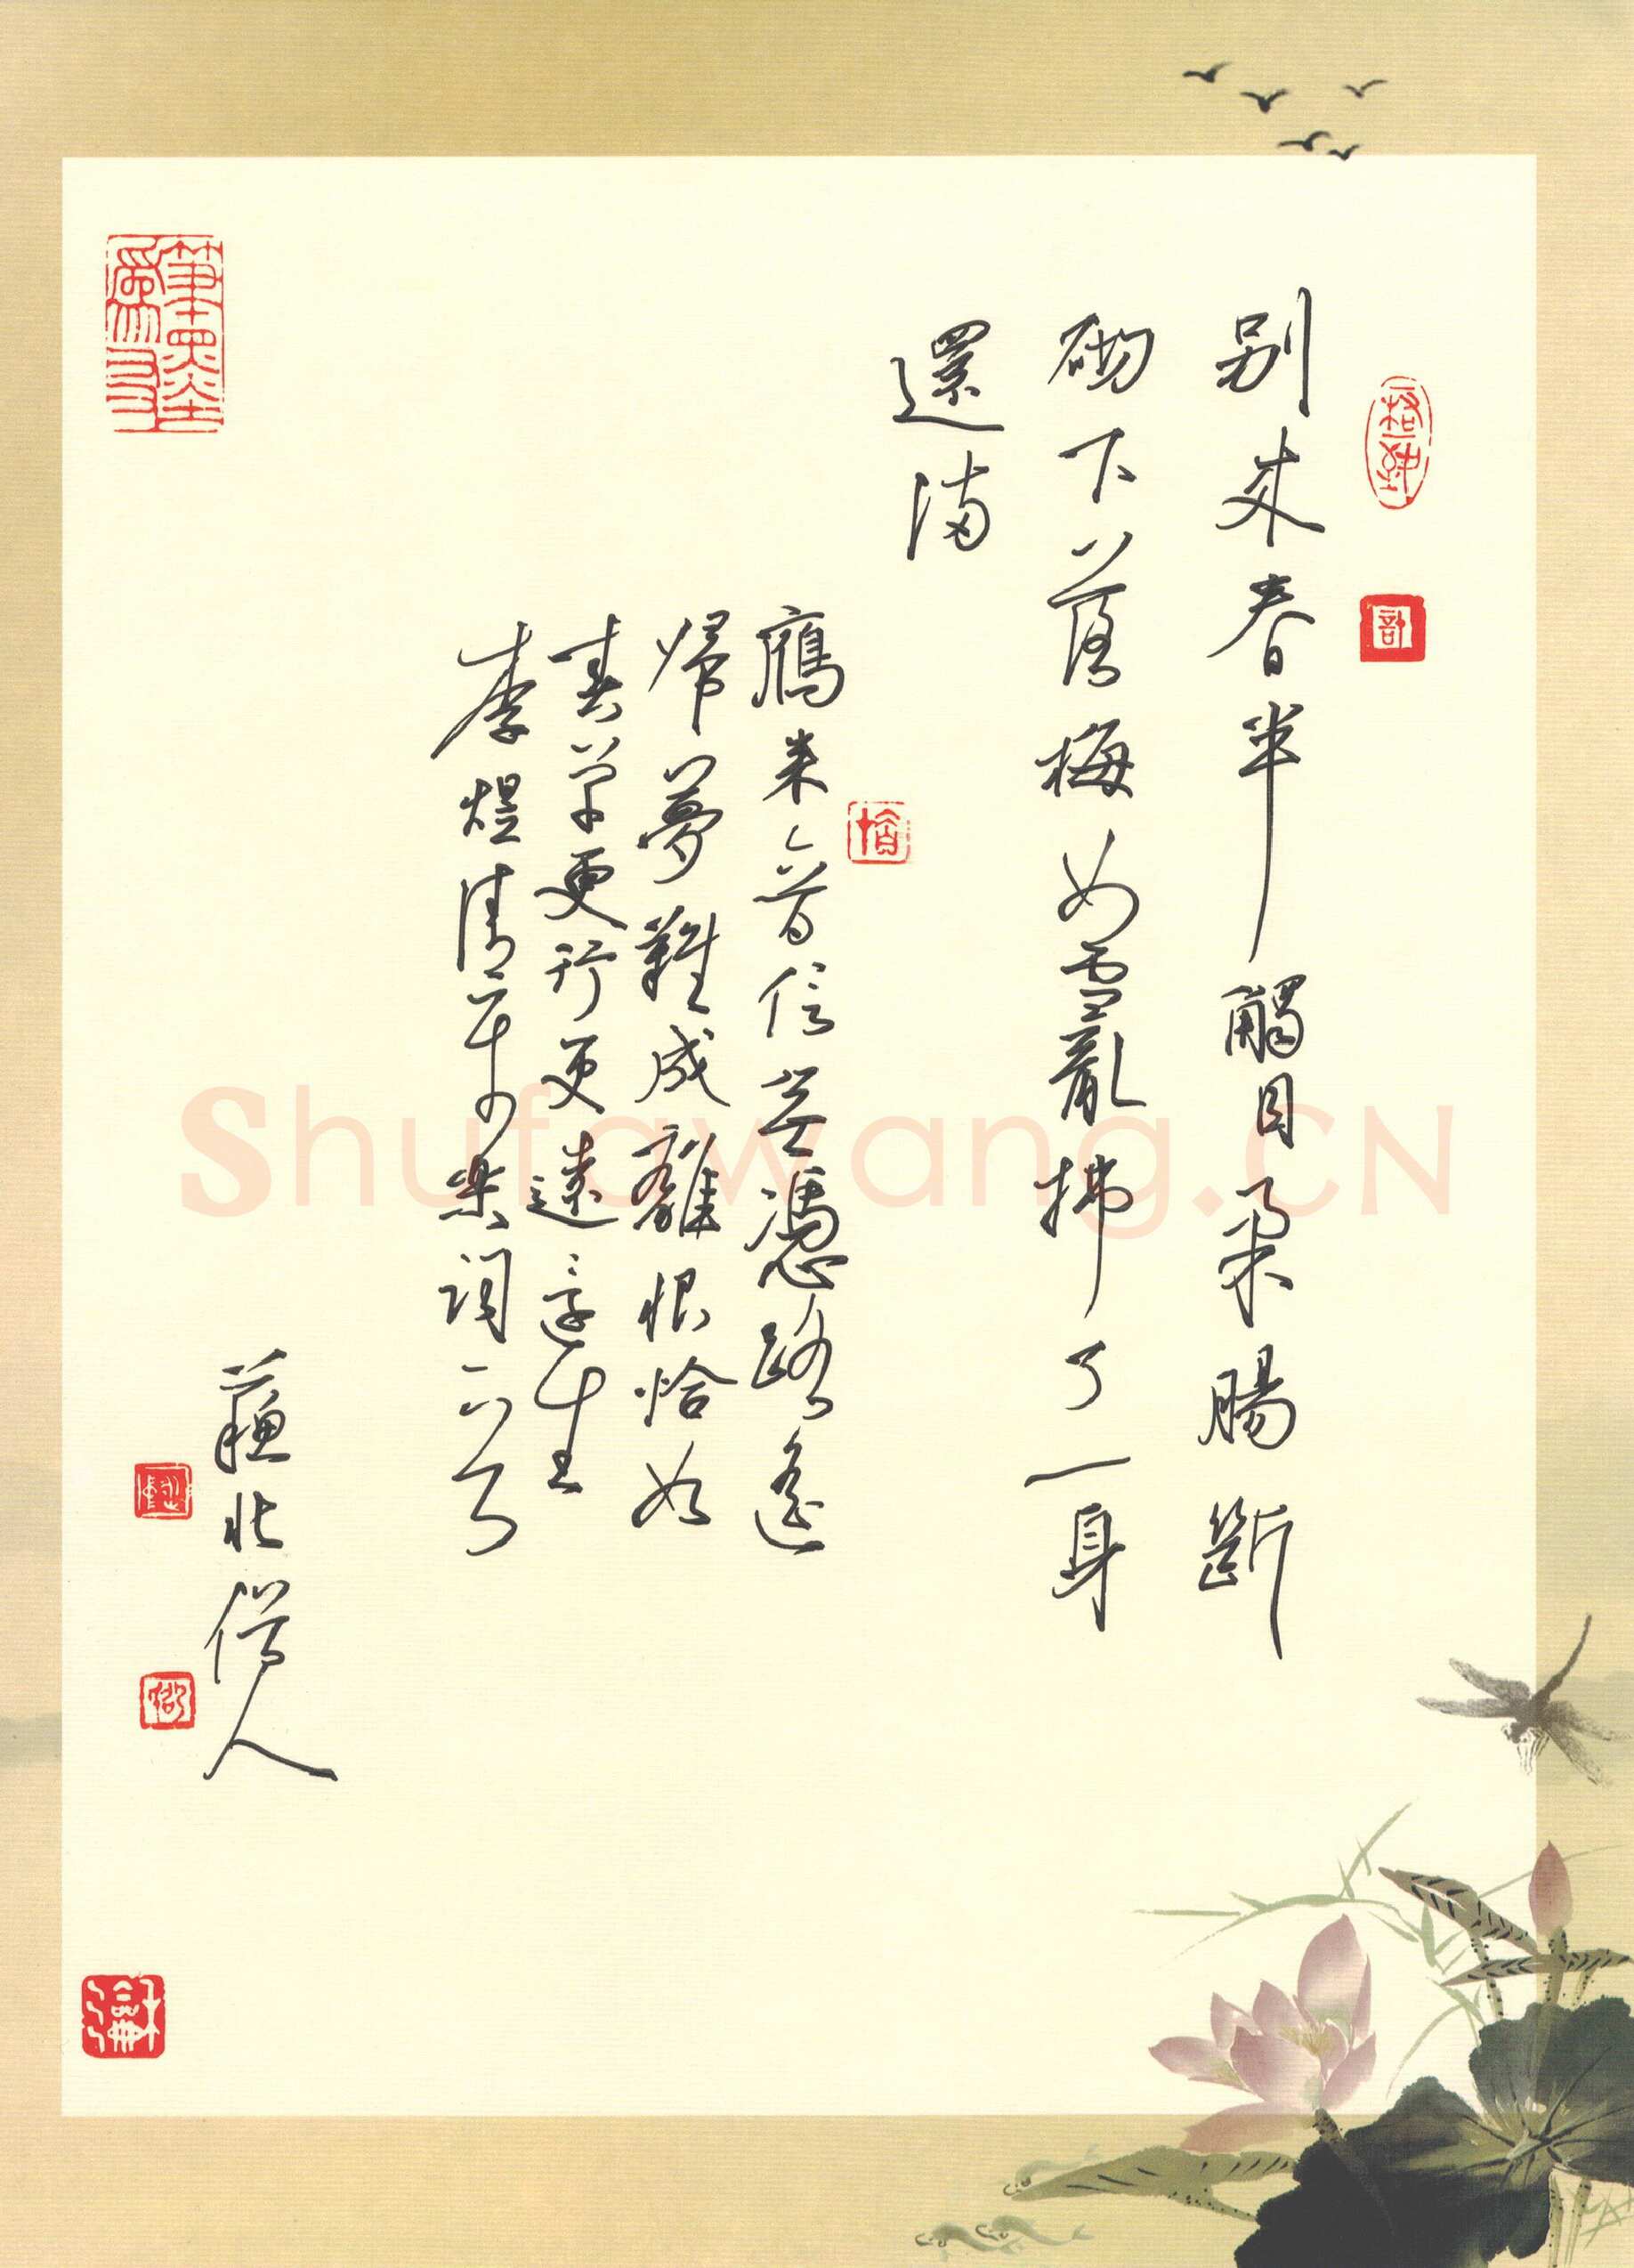 别來春半觸目柔腸斷
砌下落梅如雪亂拂了一身
還滿
鴈来音信無憑路遙
歸夢難成離恨恰如
春草更行更遠還生
李煜清平樂词一首
蘇北人
筆墨爲友
Shufawang.CN